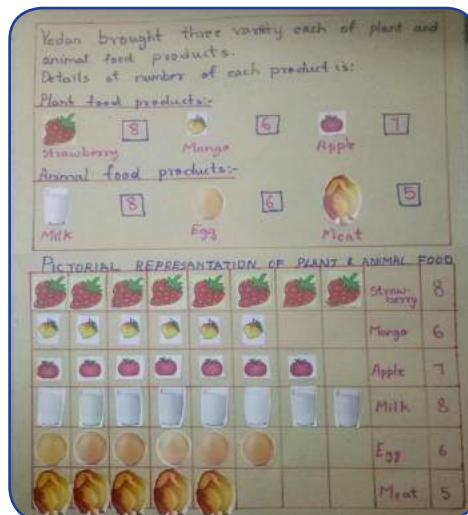 Vedan brought three variety each of plant and
animal food products.
Details of number of each product is:
Plant food products:-
8 6 7
Strawberry Mango Apple
Animal food products:-
8 6 5
Milk Egg Meat
PICTORIAL REPRESANTATION OF PLANT & ANIMAL FOOD
Straw-
berry 8
Mango 6
Apple 7
Milk 8
Egg 6
Meat 5